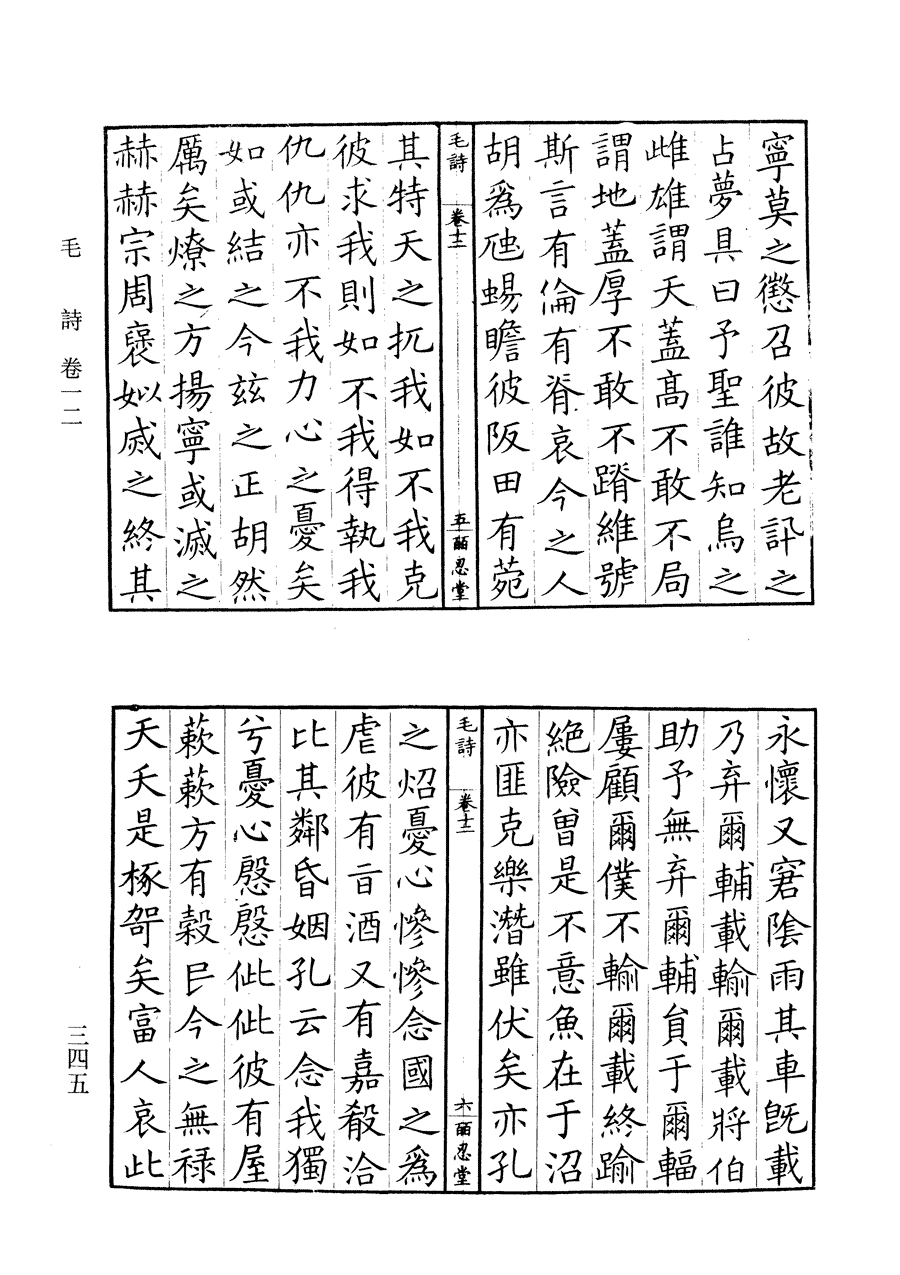 寧莫之懲召彼故老訊之
占夢具曰予聖誰知烏之
雌雄謂天蓋髙不敢不局
謂地蓋厚不敢不蹐維號
斯言有倫有脊哀今之人
胡爲虺蜴瞻彼阪田有菀
毛詩 卷十二 五 皕忍堂
其特天之扤我如不我克
彼求我則如不我得執我
仇仇亦不我力心之憂矣
如或結之今兹之正胡然
厲矣燎之方揚寧或滅之
赫赫宗周襃姒烕之終其
永懷又窘隂雨其車旣載
乃弃爾輔載輸爾載將伯
助予無弃爾輔員于爾輻
屢顧爾僕不輸爾載終踰
絶險曾是不意魚在于沼
亦匪克樂潛雖伏矣亦孔
毛詩 卷十二 六 皕忍堂
之炤憂心慘慘念國之爲
虐彼有旨酒又有嘉殽洽
比其鄰昏姻孔云念我獨
兮憂心慇慇佌佌彼有屋
蔌蔌方有榖民今之無禄
天夭是椓哿矣富人哀此
毛詩 卷一二
三四五